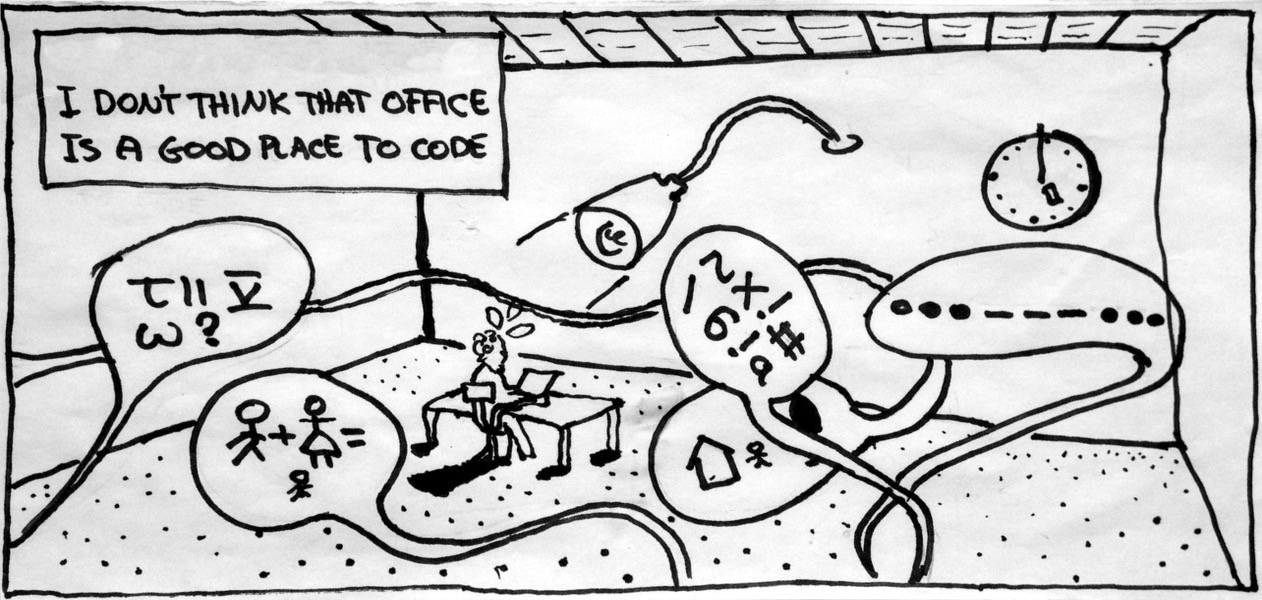 I DON'T THINK THAT OFFICE
IS A GOOD PLACE TO CODE
τ II V
ω ?
+ =
●●● – – – ●●●